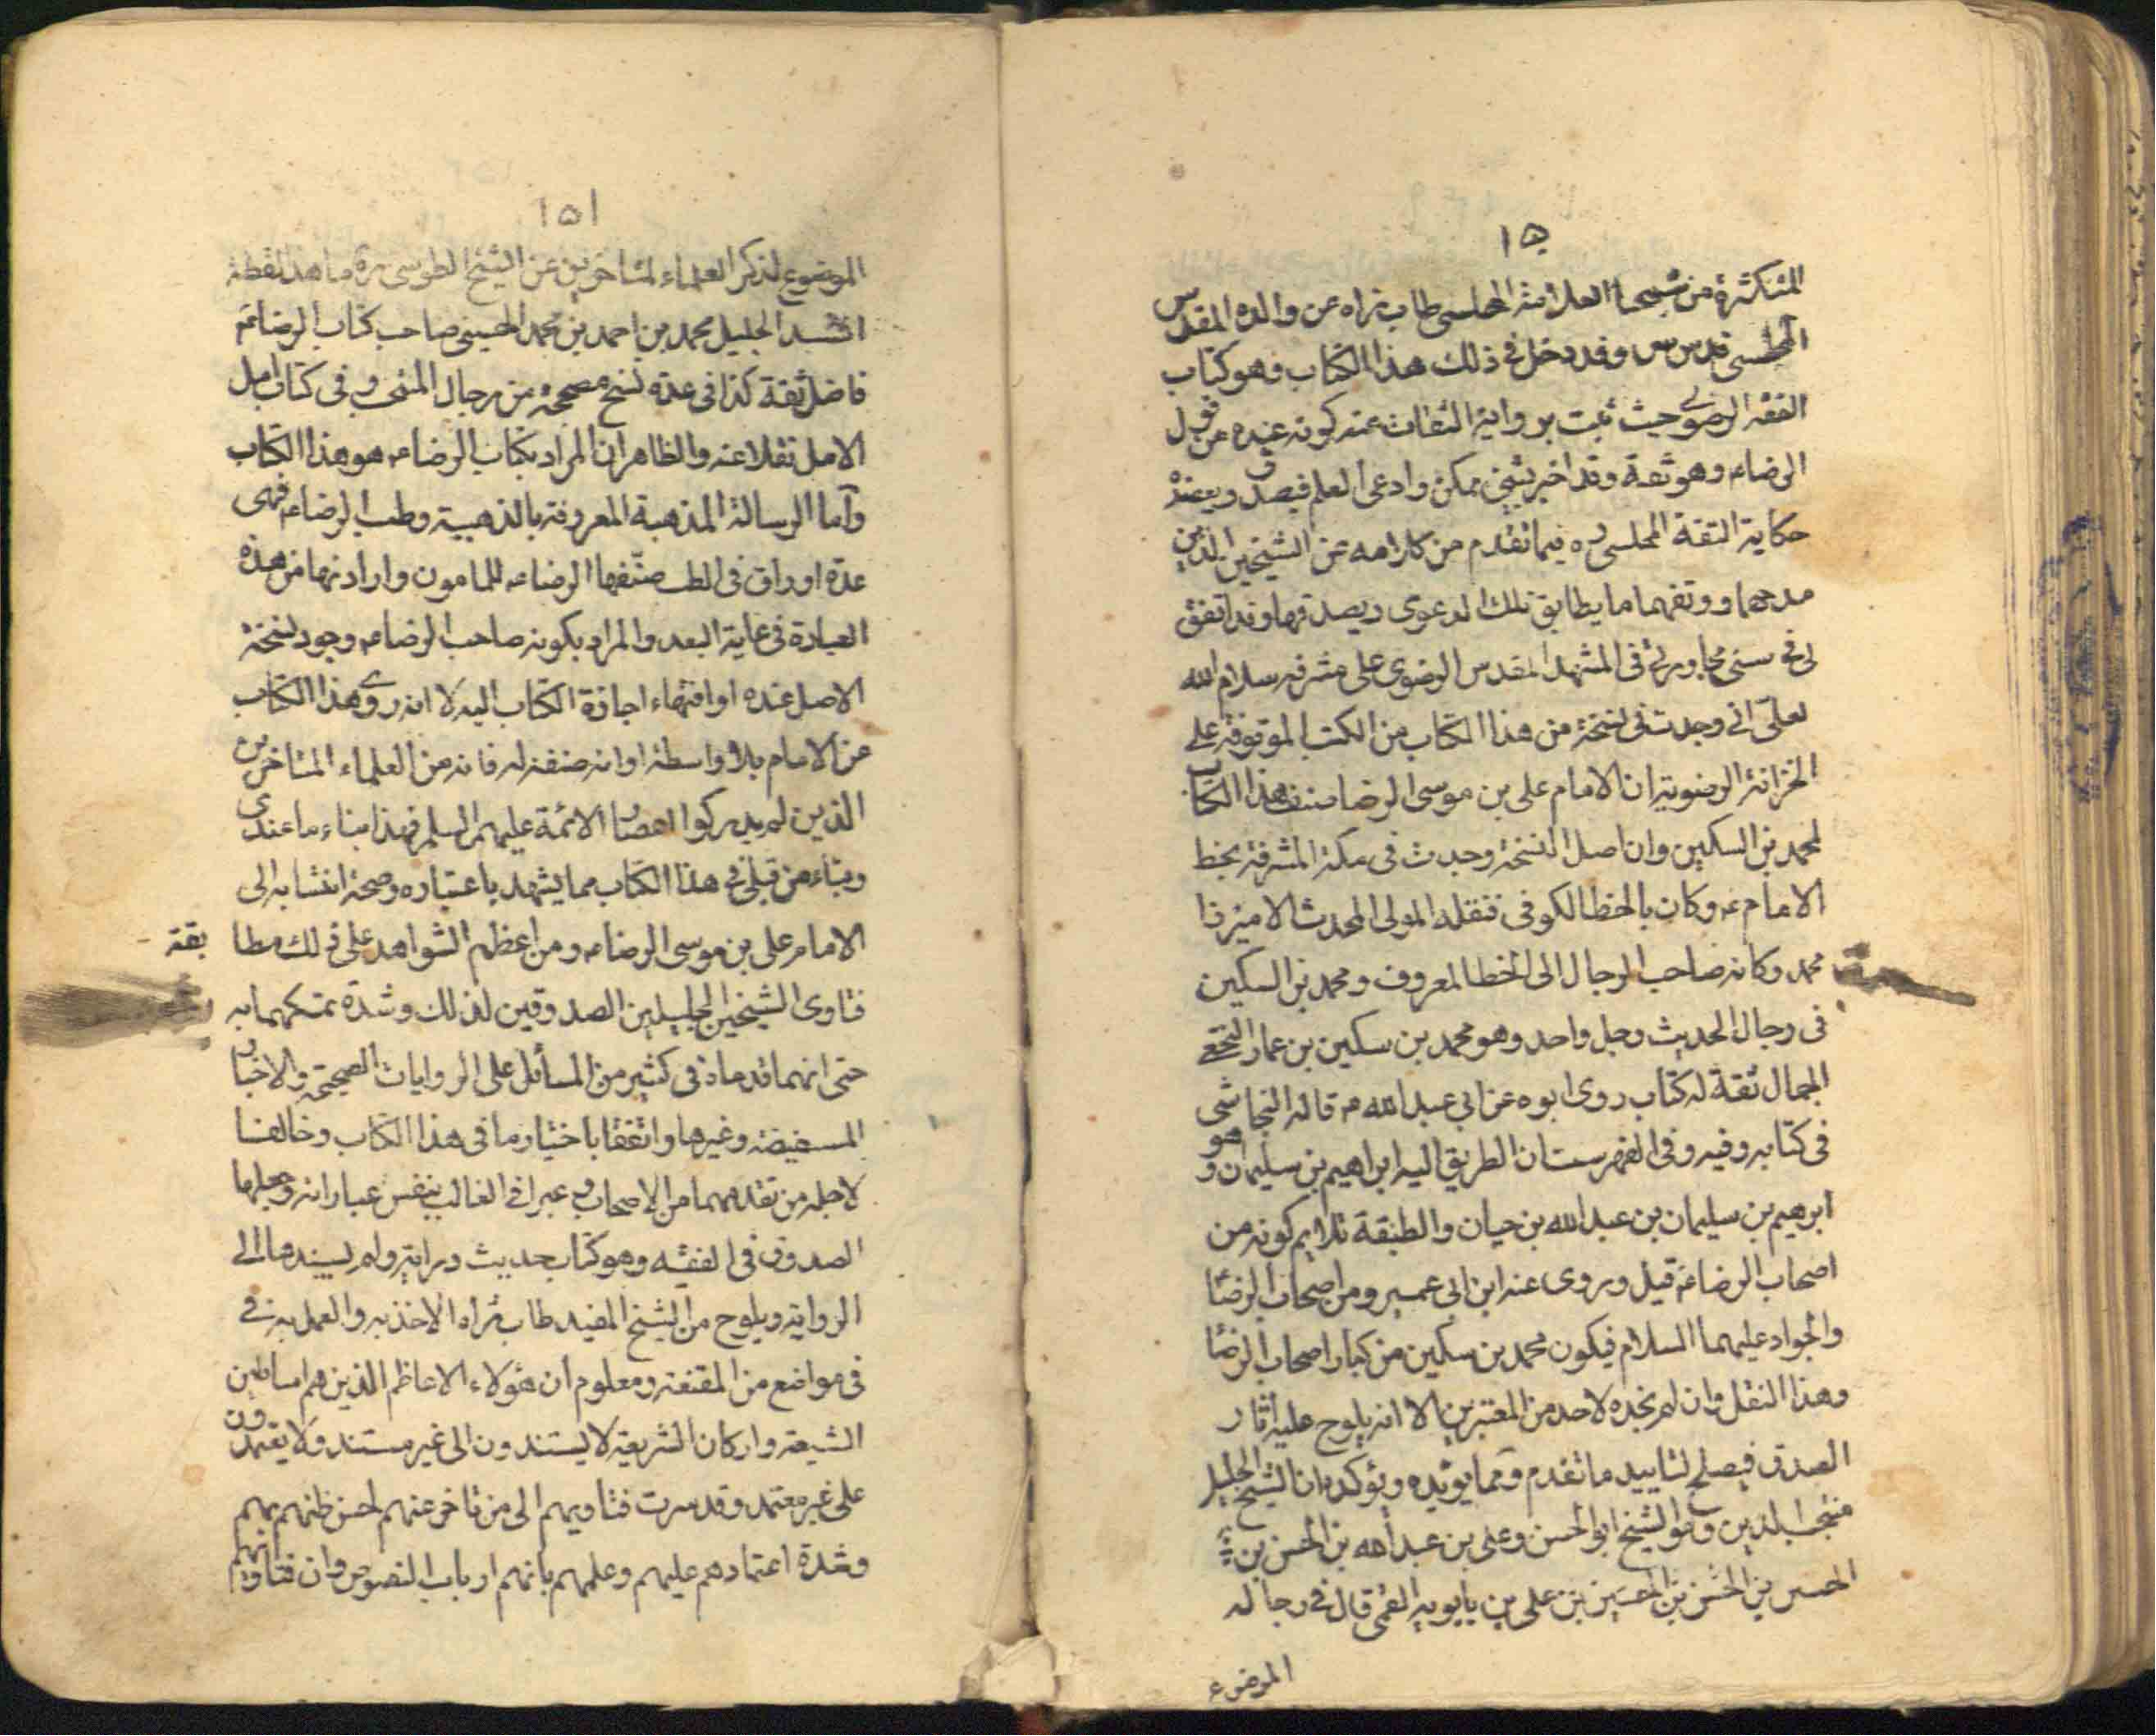 ١٥٠
المتكثرة من شيخنا العلامة المجلسي طاب ثراه عن والده المقدس
المجلسي قدس سره وقد دخل في ذلك هذا الكتاب وهو كتاب
الفقه الرضوي حيث ثبت برواية الثقات عنه كونه عنده من قول
الرضاء وهو ثقة وقد اخبر بشئ ممكن وادعى العلم فيصدق ويعضده
حكاية التقة المجلسي ره فيما تقدم من كلامه عن الشيخين الذين
مدحهما ووثقهما ما يطابق تلك الدعوى ويصدقها وقد اتفق
لى في سنى مجاورتى فى المشهد المقدس الرضوى على مشرفه سلام الله
تعلى انى وجدت فى نسخة من هذا الكتاب من الكتب الموقوفة على
الخزانة الرضوية ان الامام على بن موسى الرضا صنف هذا الكتاب
لمحمد بن السكين وان اصل النسخة وجدت فى مكة المشرفة بخط
الامام ء وكان بالخط الكوفى فنقله المولى المحدث الاميرزا
محمد وكانه صاحب الرجال الى الخط المعروف ومحمد بن السكين
فى رجال الحديث رجل واحد وهو محمد بن سكين بن عمار النخعي
الجمال ثقة له كتاب روى ابوه عن ابي عبد الله ء قاله النجاشي
فى كتابه وفيه وفى الفهرست ان الطريق اليه ابراهيم بن سليمان وهو
ابرهيم بن سليمان بن عبد الله بن حيان والطبقة تلايم كونه من
اصحاب الرضاء قيل ويروى عنه ابن ابى عمير ومن اصحاب الرضا
والجواد عليهما السلام فيكون محمد بن سكين من كبار اصحاب الرضا
وهذا النقل وان لم نجده لاحد من المعتبرين الا انه يلوح عليه اثار
الصدق فيصلح لتاييد ما تقدم ومما يويده ويؤكده ان الشيخ الجليل
منتجب الدين وهو الشيخ ابو الحسن وعلى بن عبد الله بن الحسن بن
الحسين بن الحسن بن الحسين بن على بن بابويه القمى قال في رجاله
الموضوع
١٥١
الموضوع لذكر العلماء المتاخرين عن الشيخ الطوسى ره ما هذا لفظه
السيد الجليل محمد بن احمد بن محمد الحسينى صاحب كتاب الرضاء
فاضل ثقة كذا فى عدة نسخ مصححة من رجال المنتجب وفى كتاب امل
الامل نقلا عنه والظاهر ان المراد بكتاب الرضاء هو هذا الكتاب
وآما الرسالة المذهبة المعروفة بالذهبية وطب الرضاء فهى
عدة اوراق فى الطب صنّفها الرضاء للمامون وارادتها من هذه
العبارة فى غاية البعد والمراد بكونه صاحب الرضاء وجود نسخة
الاصل عنده او انتهاء اجازة الكتاب اليه لا انه روى هذا الكتاب
عن الامام بلا واسطة او انه صنفه له فانه من العلماء المتاخرين
الذين لم يدركوا اعصار الائمة عليهم السلم فهذا مبناء ما عندى
ومبناء من قبلى في هذا الكتاب مما يشهد باعتباره وصحة انتسابه الى
الامام على بن موسى الرضاء ومن اعظم الشواهد على ذلك مطا بقة
فتاوى الشيخين الجليلين الصدوقين لذلك وشدة تمسكهما به
حتى انهما قدماه فى كثير من المسائل على الروايات الصحيحة والاخبار
المستفيضة وغيرها واتفقا باختيار ما فى هذا الكتاب وخالفا
لاجله من تقدمهما من الاصحاب وعبرا في الغالب بنفس عباراته وجعلها
الصدوق فى الفقيه وهو كتاب حديث دراية ولم يسندها الى
الرواية ويلوح من الشيخ المفيد طاب ثراه الاخذ به والعمل به في
فى مواضع من المقنعة ومعلوم ان هؤلاء الاعاظم الذين هم اساطين
الشيعة واركان الشريعة لا يستندون الى غير مستند ولا يعتمدون
على غير معتمد وقد سرت فتاويهم الى من تاخر عنهم لحسن ظنهم بهم
وشدة اعتمادهم عليهم وعلمهم بانهم ارباب النصوص وان فتاويهم